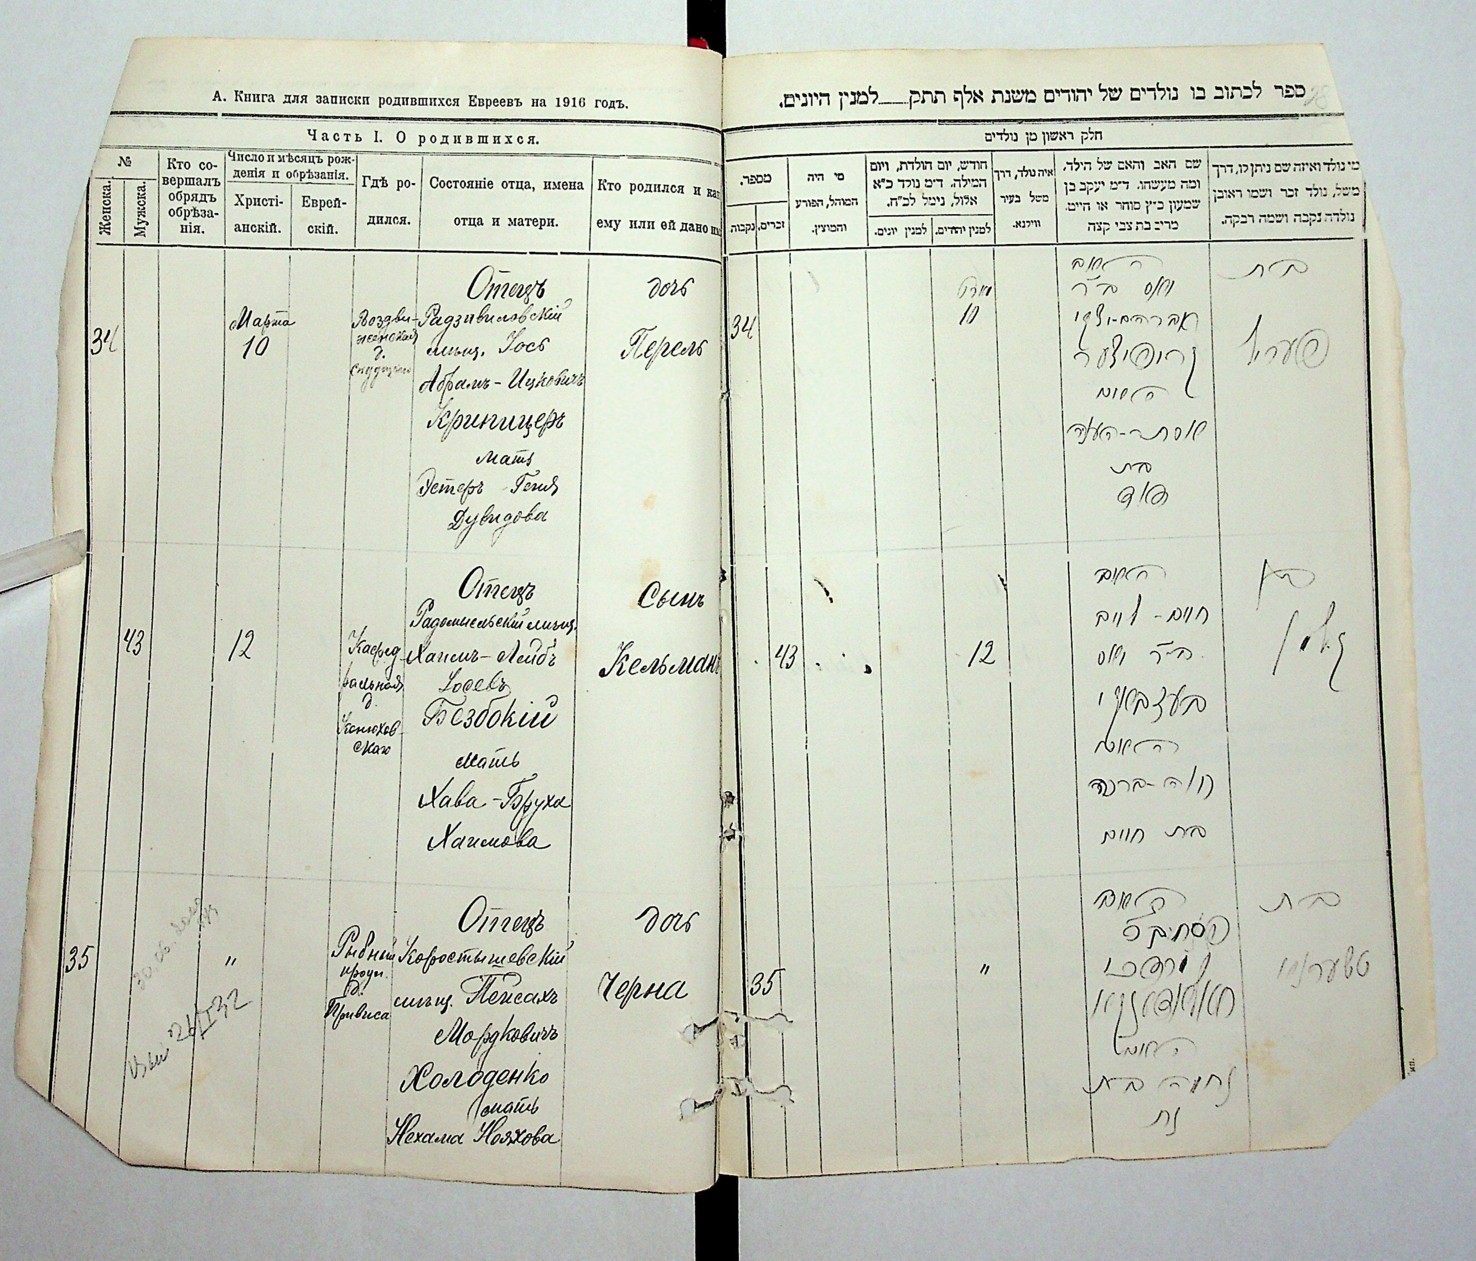 А. Книга для записки родившихся Евреевъ на 1916 годъ.
Часть I. О родившихся.
№
Женска.
Мужска.
Кто со-
вершалъ
обрядъ
обрѣза-
нія.
Число и мѣсяцъ рож-
денія и обрѣзанія.
Христі-
анскій.
Еврей-
скій.
Гдѣ ро-
дился.
Состояніе отца, имена
отца и матери.
Кто родился и как
ему или ей дано им
34
Марта
10
Воздви-
женская
д.
Отецъ
Радзивиловскій
мѣщ. Іось
Абрамъ-Ицковичъ
Криницеръ
мать
Эстеръ-Геня
Дувидова
дочь
Перель
43
12
Кафед-
ральная
д.
Конюхов-
скаго
Отецъ
Радомысльскій мѣщ.
Хаимъ-Лейбъ
Іосевъ
Беззбокій
мать
Хава-Бруха
Хаимова
Сынъ
Кельманъ
35
"
Рыбный
д.
Отецъ
Коростышевскій
мѣщ. Пейсахъ
Мордковичъ
Холоденко
мать
Нехама Нояхова
дочь
Черна
ספר לכתוב בו נולדים של יהודים משנת אלף תתק___למנין היונים.
חלק ראשון מן נולדים
מספר.
נקבות
זכרים.
מי היה
המוהל, הפורע
והמוצץ.
חודש, יום הולדת, ויום
המילה. ד״מ נולד כ״א
אלול, נימל לכ״ח.
למנין יונים.
למנין יהודים.
איה נולד, דרך
משל בעיר
ווילנא.
שם האב והאם של הילד.
ומה מעשהו. ד״מ יעקב בן
שמעון כ״ץ סוחר או חייט.
מרים בת צבי קצה
מי נולד ואיזה שם ניתן לו, דרך
משל, נולד זכר ושמו ראובן
נולדה נקבה ושמה רבקה.
34
10
האב
אברהם-יצחק
האם
אסתר-העניא
בת
דוד
בת
פערל
43
12
האב
חיים-לייב
ב״ר יוס
האם
חוה-ברכה
בת חיים
בן
קלמן
35
"
האב
האם
נחמה בת
נח
בת
טשערניא